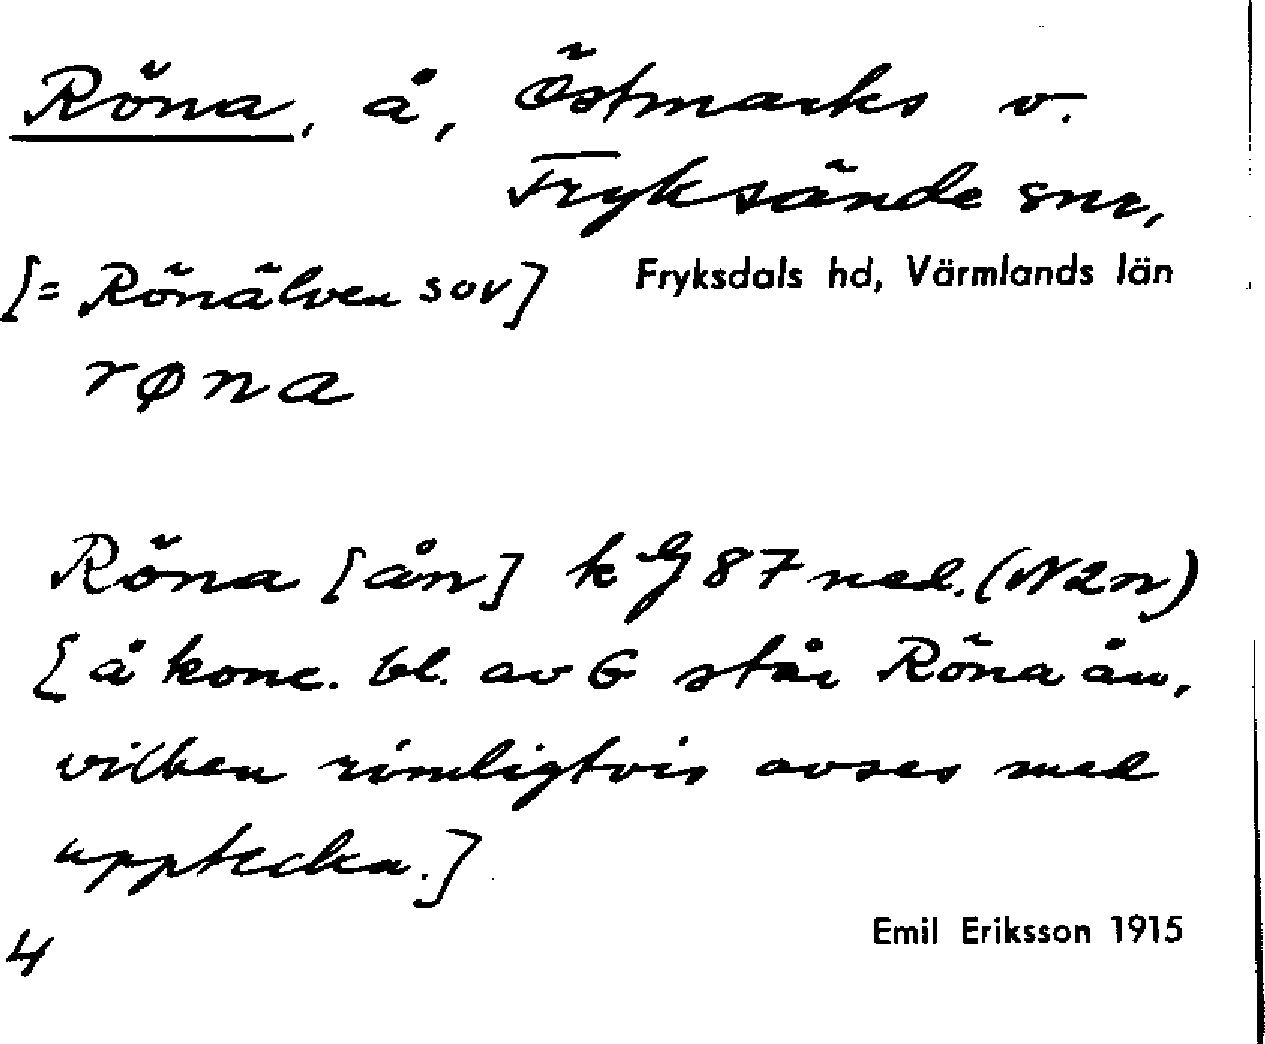 Röna, å, Östmarks o.
Fryksände snr,
[= Rönälven sov] Fryksdals hd, Värmlands län
røna
Röna [ån] k G 87 ned. (N2n)
[å konc. bl. av G står Röna ån,
vilken rimligtvis avses med
uppteckn.]
Emil Eriksson 1915
4